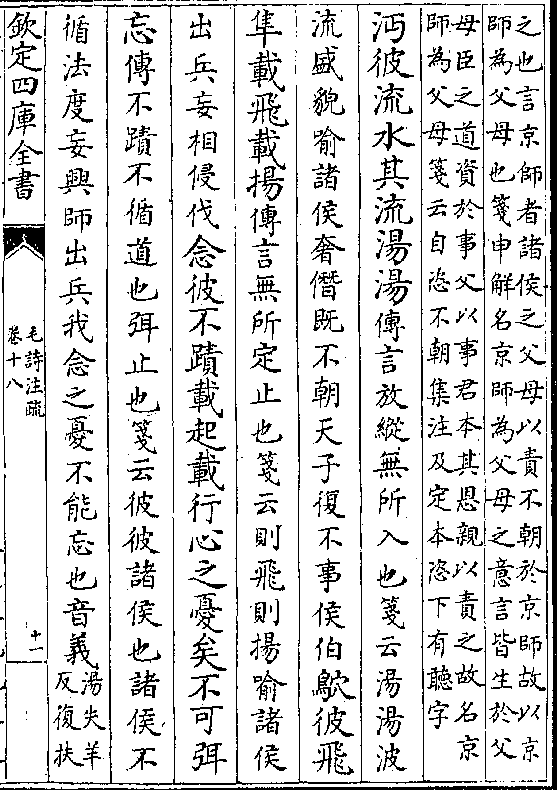 之也言京師者諸侯之父母以責不朝於京師故以京
師為父母也箋申解名京師為父母之意言皆生於父
母臣之道資於事父以事君本其恩親以責之故名京
師為父母箋云自恣不朝集注及定本恣下有聽字
沔彼流水其流湯湯傳言放縱無所入也箋云湯湯波
流盛貌喻諸侯奢僭既不朝天子復不事侯伯鴥彼飛
隼載飛載揚傳言無所定止也箋云則飛則揚喻諸侯
出兵妄相侵伐念彼不蹟載起載行心之憂矣不可弭
忘傳不蹟不循道也弭止也箋云彼彼諸侯也諸侯不
循法度妄興師出兵我念之憂不能忘也音義
湯失羊
反復扶
欽定四庫全書
毛詩注疏
卷十八
十一